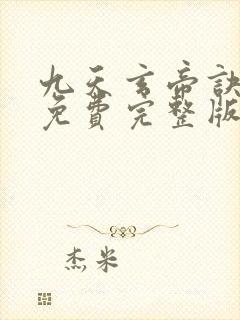 九天玄帝訣
免費完整版
杰米